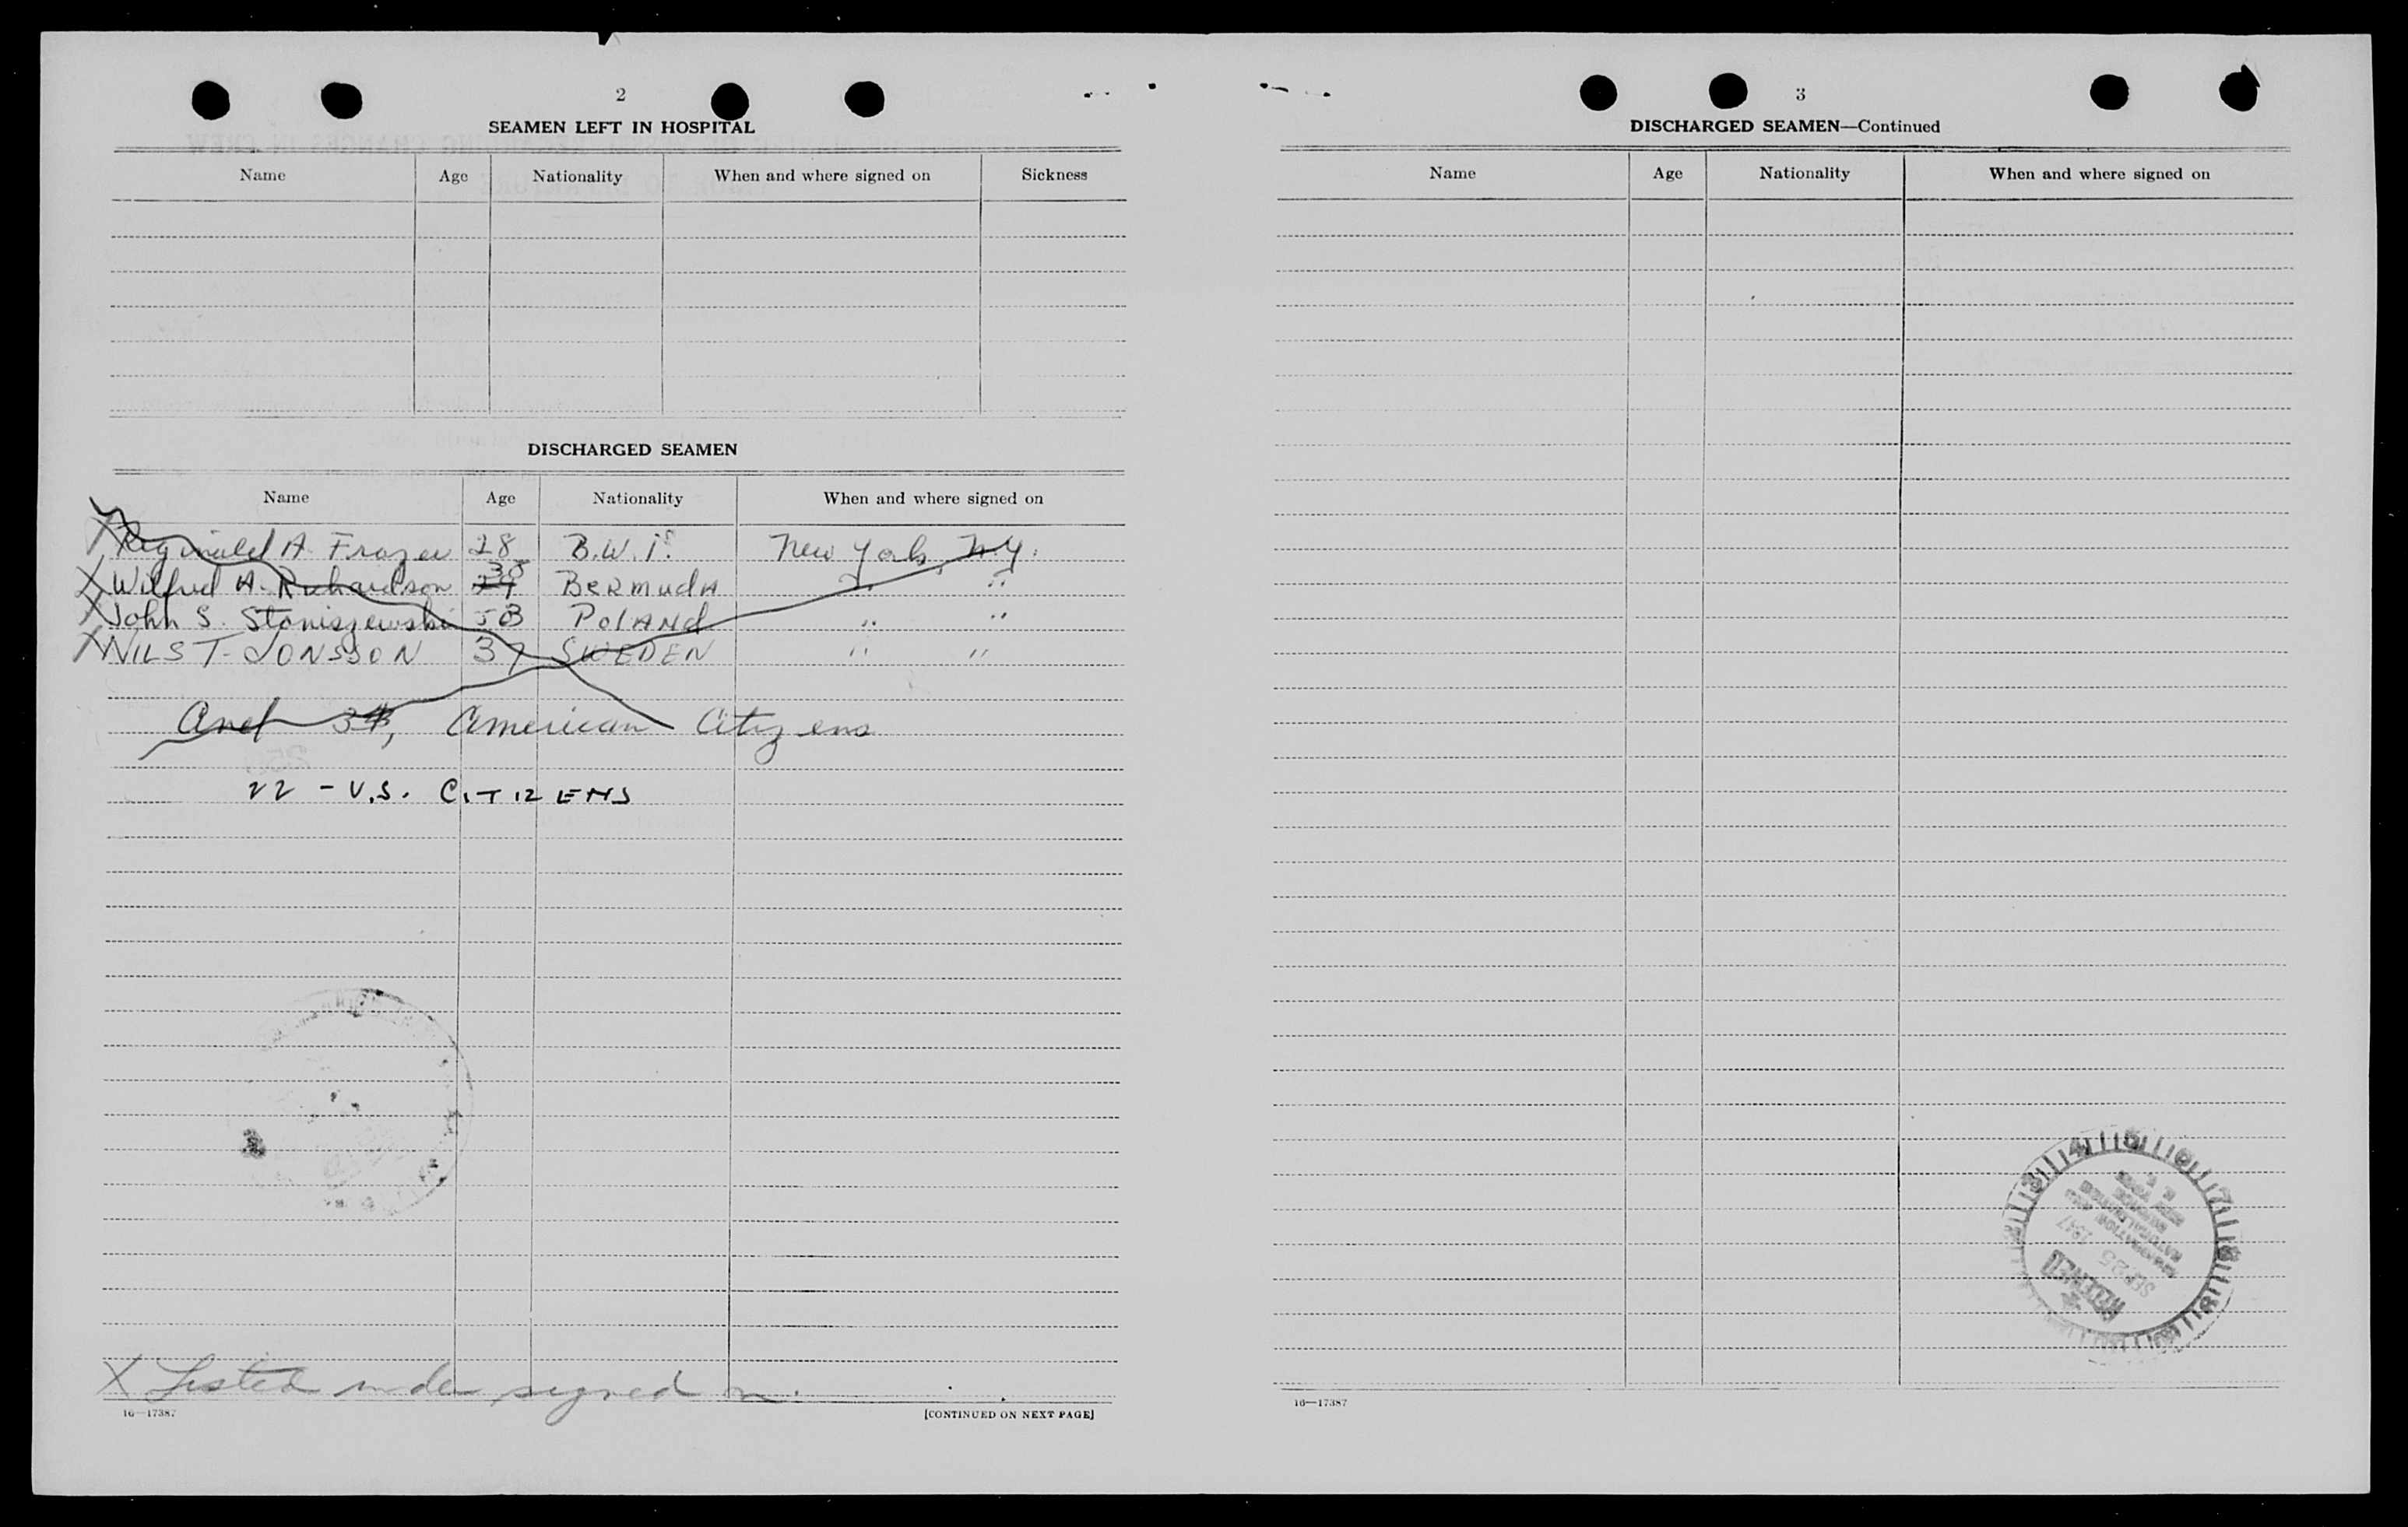 2
SEAMEN LEFT IN HOSPITAL
Name Age Nationality When and where signed on Sickness
DISCHARGED SEAMEN
Name Age Nationality When and where signed on
X Reginald A. Frazer 28 B.W.I. New York, N.Y.
X Wilfred A. Richardson 38 Bermuda " "
X John S. Staniszewski 53 Poland " "
X NILS T. JONSSON 37 SWEDEN " "
and American Citizens
22 - U.S. CITIZENS
X Listed under signed on.
16—17387
[CONTINUED ON NEXT PAGE]
3
DISCHARGED SEAMEN—Continued
Name Age Nationality When and where signed on
RECEIVED
SEP 25 1947
IMMIGRATION AND
NATURALIZATION
NEW YORK
16—17387